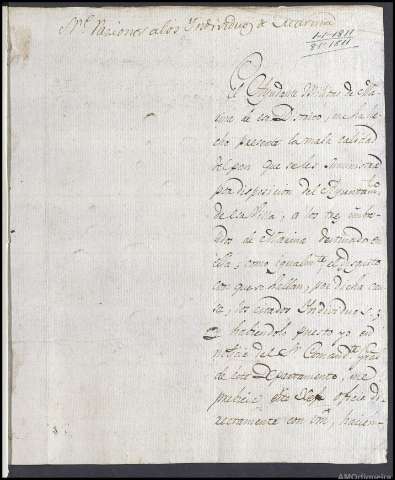 Sre Raciones a los Individuos de Marina
1-1-1811
8-1-1811
El Ayudante Militar de Ma-
rina de ese Distrito, me ha he-
cho presente la mala calidad
del pan que se les suministra
por disposicion del Ayuntamto
de esa Villa, a los
de Marina destinados en
ella; como igualmte el disgusto
con que se hallan, por dicha cau-
sa, los citados Individuos; y
habiendolo puesto yo en
noticia del Sr Comandte Gral
de este Departamento, me
previene Exa oficie di-
rectamente con Vm, hacien-
AMOrtigueira